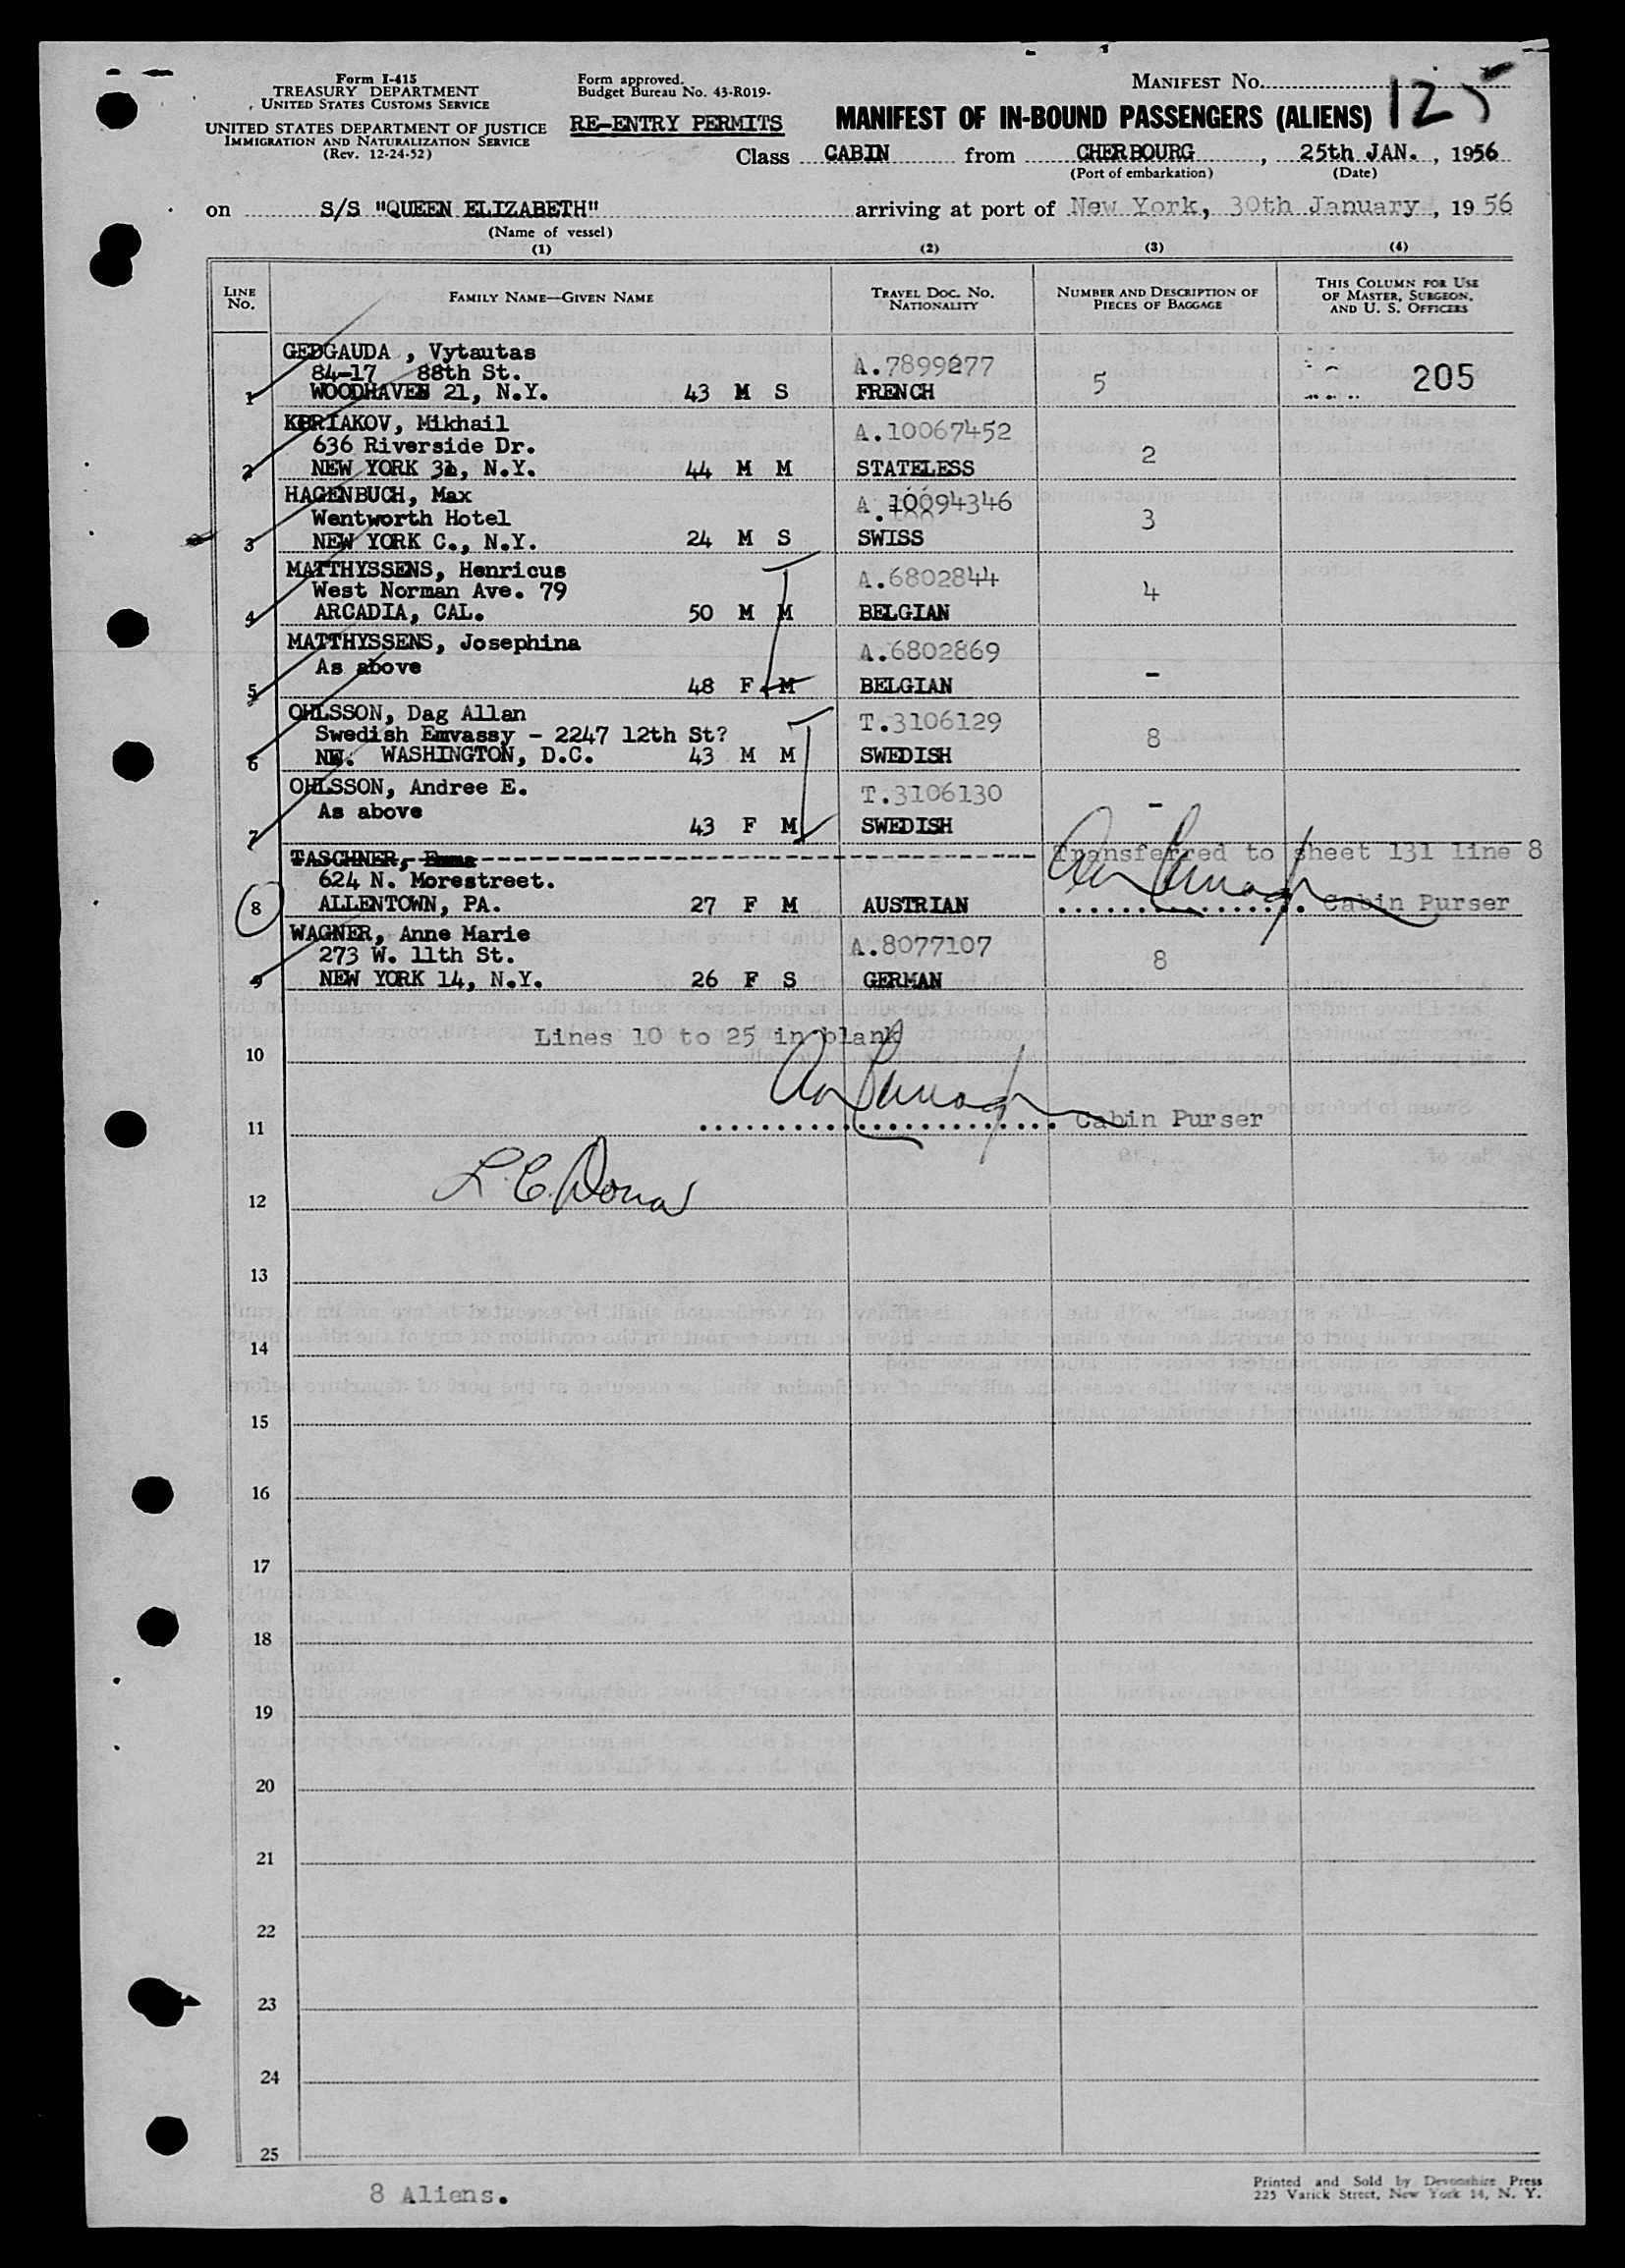 Form I-415
TREASURY DEPARTMENT
UNITED STATES CUSTOMS SERVICE
UNITED STATES DEPARTMENT OF JUSTICE
IMMIGRATION AND NATURALIZATION SERVICE
(Rev. 12-24-52)
Form approved.
Budget Bureau No. 43-R019-
RE-ENTRY PERMITS
MANIFEST No. 125
MANIFEST OF IN-BOUND PASSENGERS (ALIENS)
Class CABIN from CHERBOURG, 25th JAN., 1956
(Port of embarkation) (Date)
on S/S "QUEEN ELIZABETH" arriving at port of New York, 30th January, 1956
(Name of vessel)
(1) (2) (3) (4)
LINE No. FAMILY NAME—GIVEN NAME TRAVEL DOC. NO. NATIONALITY NUMBER AND DESCRIPTION OF PIECES OF BAGGAGE THIS COLUMN FOR USE OF MASTER, SURGEON, AND U. S. OFFICERS
GEDGAUDA , Vytautas A.7899277
84-17 88th St. 5 205
1 WOODHAVEN 21, N.Y. 43 M S FRENCH
KORIAKOV, Mikhail A.10067452
636 Riverside Dr. 2
2 NEW YORK 31, N.Y. 44 M M STATELESS
HAGENBUCH, Max A.10094346
Wentworth Hotel 3
3 NEW YORK C., N.Y. 24 M S SWISS
MATTHYSSENS, Henricus A.6802844
West Norman Ave. 79 4
4 ARCADIA, CAL. 50 M M BELGIAN
MATTHYSSENS, Josephina A.6802869
As above -
5 48 F M BELGIAN
OHLSSON, Dag Allan T.3106129
Swedish Emvassy - 2247 12th St? 8
6 NW. WASHINGTON, D.C. 43 M M SWEDISH
OHLSSON, Andree E. T.3106130
As above -
7 43 F M SWEDISH
TASCHNER, Emma Transferred to sheet 131 line 8
624 N. Morestreet.
8 ALLENTOWN, PA. 27 F M AUSTRIAN Cabin Purser
WAGNER, Anne Marie A.8077107
273 W. 11th St. 8
9 NEW YORK 14, N.Y. 26 F S GERMAN
Lines 10 to 25 in blank
10
11 Cabin Purser
12
13
14
15
16
17
18
19
20
21
22
23
24
25
8 Aliens.
Printed and Sold by Devonshire Press
225 Varick Street, New York 14, N. Y.